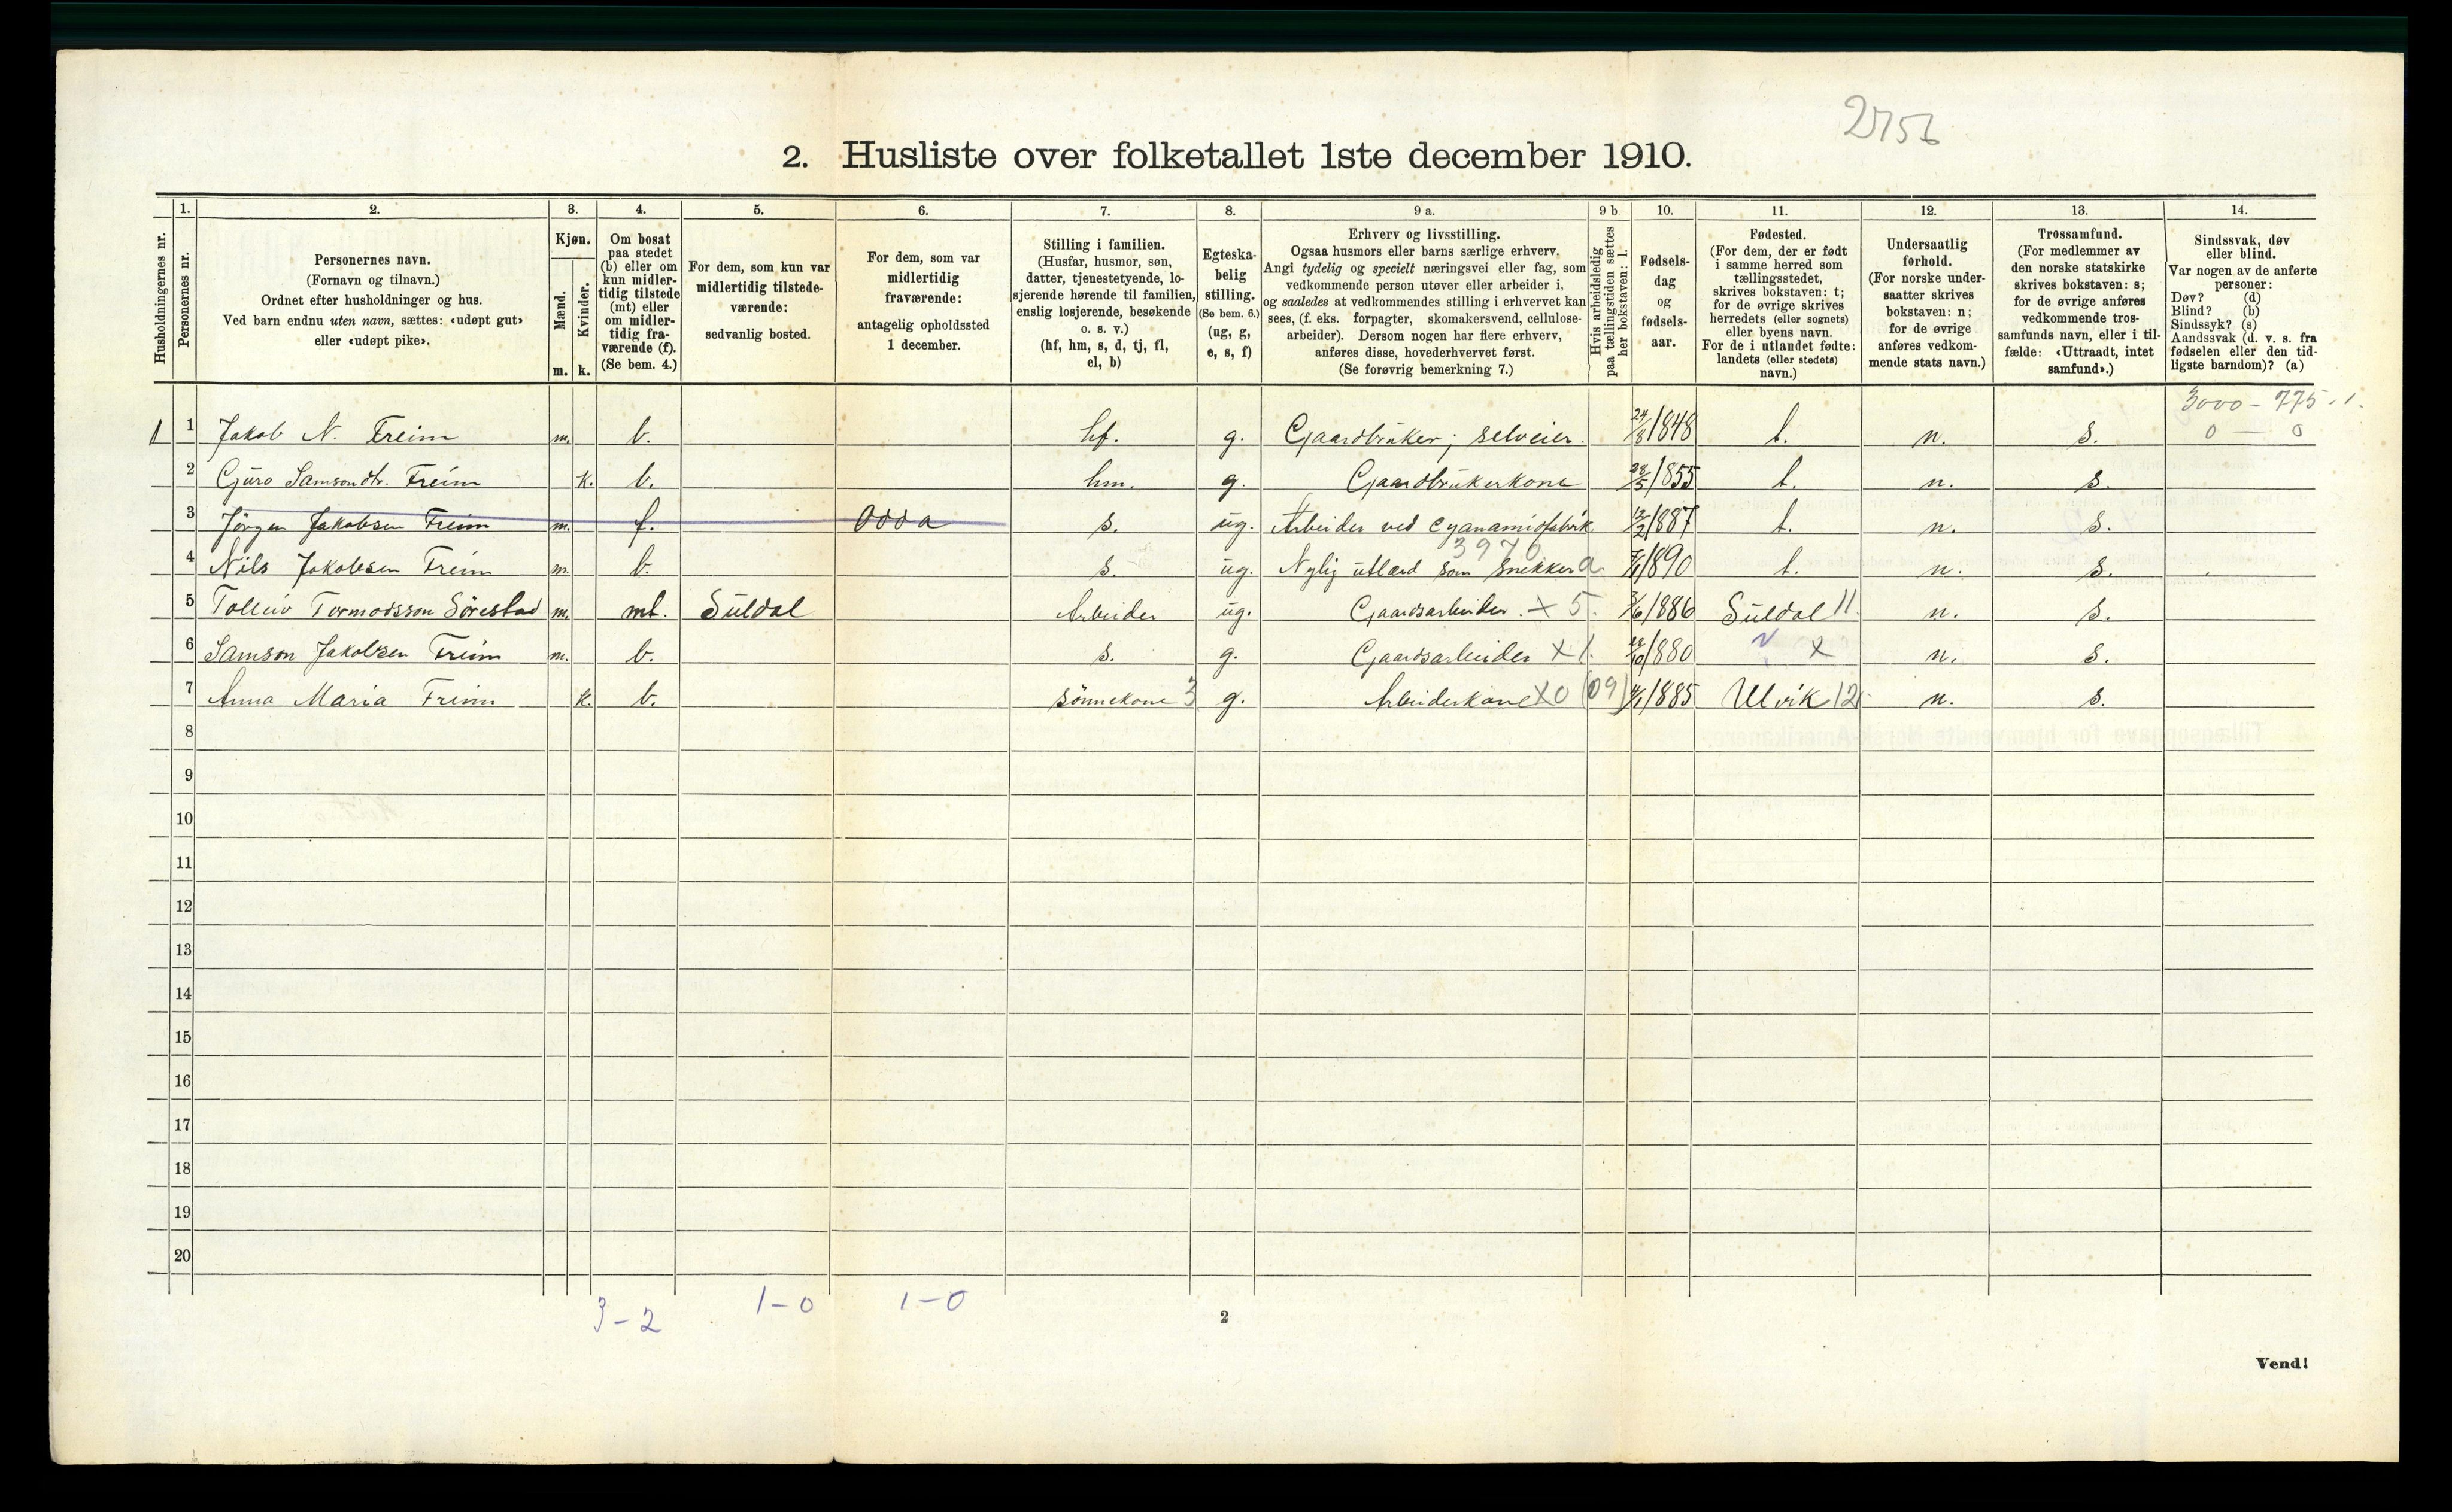 2756
2. Husliste over folketallet 1ste december 1910.
Husholdningernes nr.
1.
Personernes nr.
2.
Personernes navn.
(Fornavn og tilnavn.)
Ordnet efter husholdninger og hus.
Ved barn endnu uten navn, sættes: «udøpt gut»
eller «udøpt pike».
3.
Kjøn.
Mænd.
Kvinder.
m. k.
4.
Om bosat
paa stedet
(b) eller om
kun midler-
tidig tilstede
(mt) eller
om midler-
tidig fra-
værende (f).
(Se bem. 4.)
5.
For dem, som kun var
midlertidig tilstede-
værende:
sedvanlig bosted.
6.
For dem, som var
midlertidig
fraværende:
antagelig opholdssted
1 december.
7.
Stilling i familien.
(Husfar, husmor, søn,
datter, tjenestetyende, lo-
sjerende hørende til familien,
enslig losjerende, besøkende
o. s. v.)
(hf, hm, s, d, tj, fl,
el, b)
8.
Egteska-
belig
stilling.
(Se bem. 6.)
(ug, g,
e, s, f)
9 a.
Erhverv og livsstilling.
Ogsaa husmors eller barns særlige erhverv.
Angi tydelig og specielt næringsvei eller fag, som
vedkommende person utøver eller arbeider i,
og saaledes at vedkommendes stilling i erhvervet kan
sees, (f. eks. forpagter, skomakersvend, cellulose-
arbeider). Dersom nogen har flere erhverv,
anføres disse, hovederhvervet først.
(Se forøvrig bemerkning 7.)
9 b
Hvis arbeidsledig
paa tællingstiden sættes
her bokstaven: l.
10.
Fødsels-
dag
og
fødsels-
aar.
11.
Fødested.
(For dem, der er født
i samme herred som
tællingsstedet,
skrives bokstaven: t;
for de øvrige skrives
herredets (eller sognets)
eller byens navn.
For de i utlandet fødte:
landets (eller stedets)
navn.)
12.
Undersaatlig
forhold.
(For norske under-
saatter skrives
bokstaven: n;
for de øvrige
anføres vedkom-
mende stats navn.)
13.
Trossamfund.
(For medlemmer av
den norske statskirke
skrives bokstaven: s;
for de øvrige anføres
vedkommende tros-
samfunds navn, eller i til-
fælde: «Uttraadt, intet
samfund».)
14.
Sindssvak, døv
eller blind.
Var nogen av de anførte
personer:
Døv? (d)
Blind? (b)
Sindssyk? (s)
Aandssvak (d. v. s. fra
fødselen eller den tid-
ligste barndom)? (a)
3000 – 775 . 1.
1 1 Jakob N. Freim m. b. hf. g. Gaardbruker; selveier. 24/8 1848 t. n. s. 0 — 0
2 Guro Samsondtr. Freim k. b. hm. g. Gaardbrukerkone 28/5 1855 t. n. s.
3 Jörgen Jakobsen Freim m. f. Odda s. ug. Arbeider ved Cyanamidfabrik 12/2 1887 t. n. s.
3970
4 Nils Jakobsen Freim m. b. s. ug. Nylig utlærd som snekker a 1890 t. n. s.
5 Tolleiv Tormodsson Sörestad m. mt. Suldal Arbeider ug. Gaardsarbeider. x 5. 3/6 1886 Suldal 11. n. s.
6 Samson Jakobsen Freim m. b. s. g. Gaardsarbeider x 1. 1880 x n. s.
7 Anna Maria Freim k. b. sönnekone 3 g. Arbeiderkone x0 (09) 1885 Ulvik 12 n. s.
8
9
10
11
12
13
14
15
16
17
18
19
20
3 – 2 1 – 0 1 – 0
2
Vend!